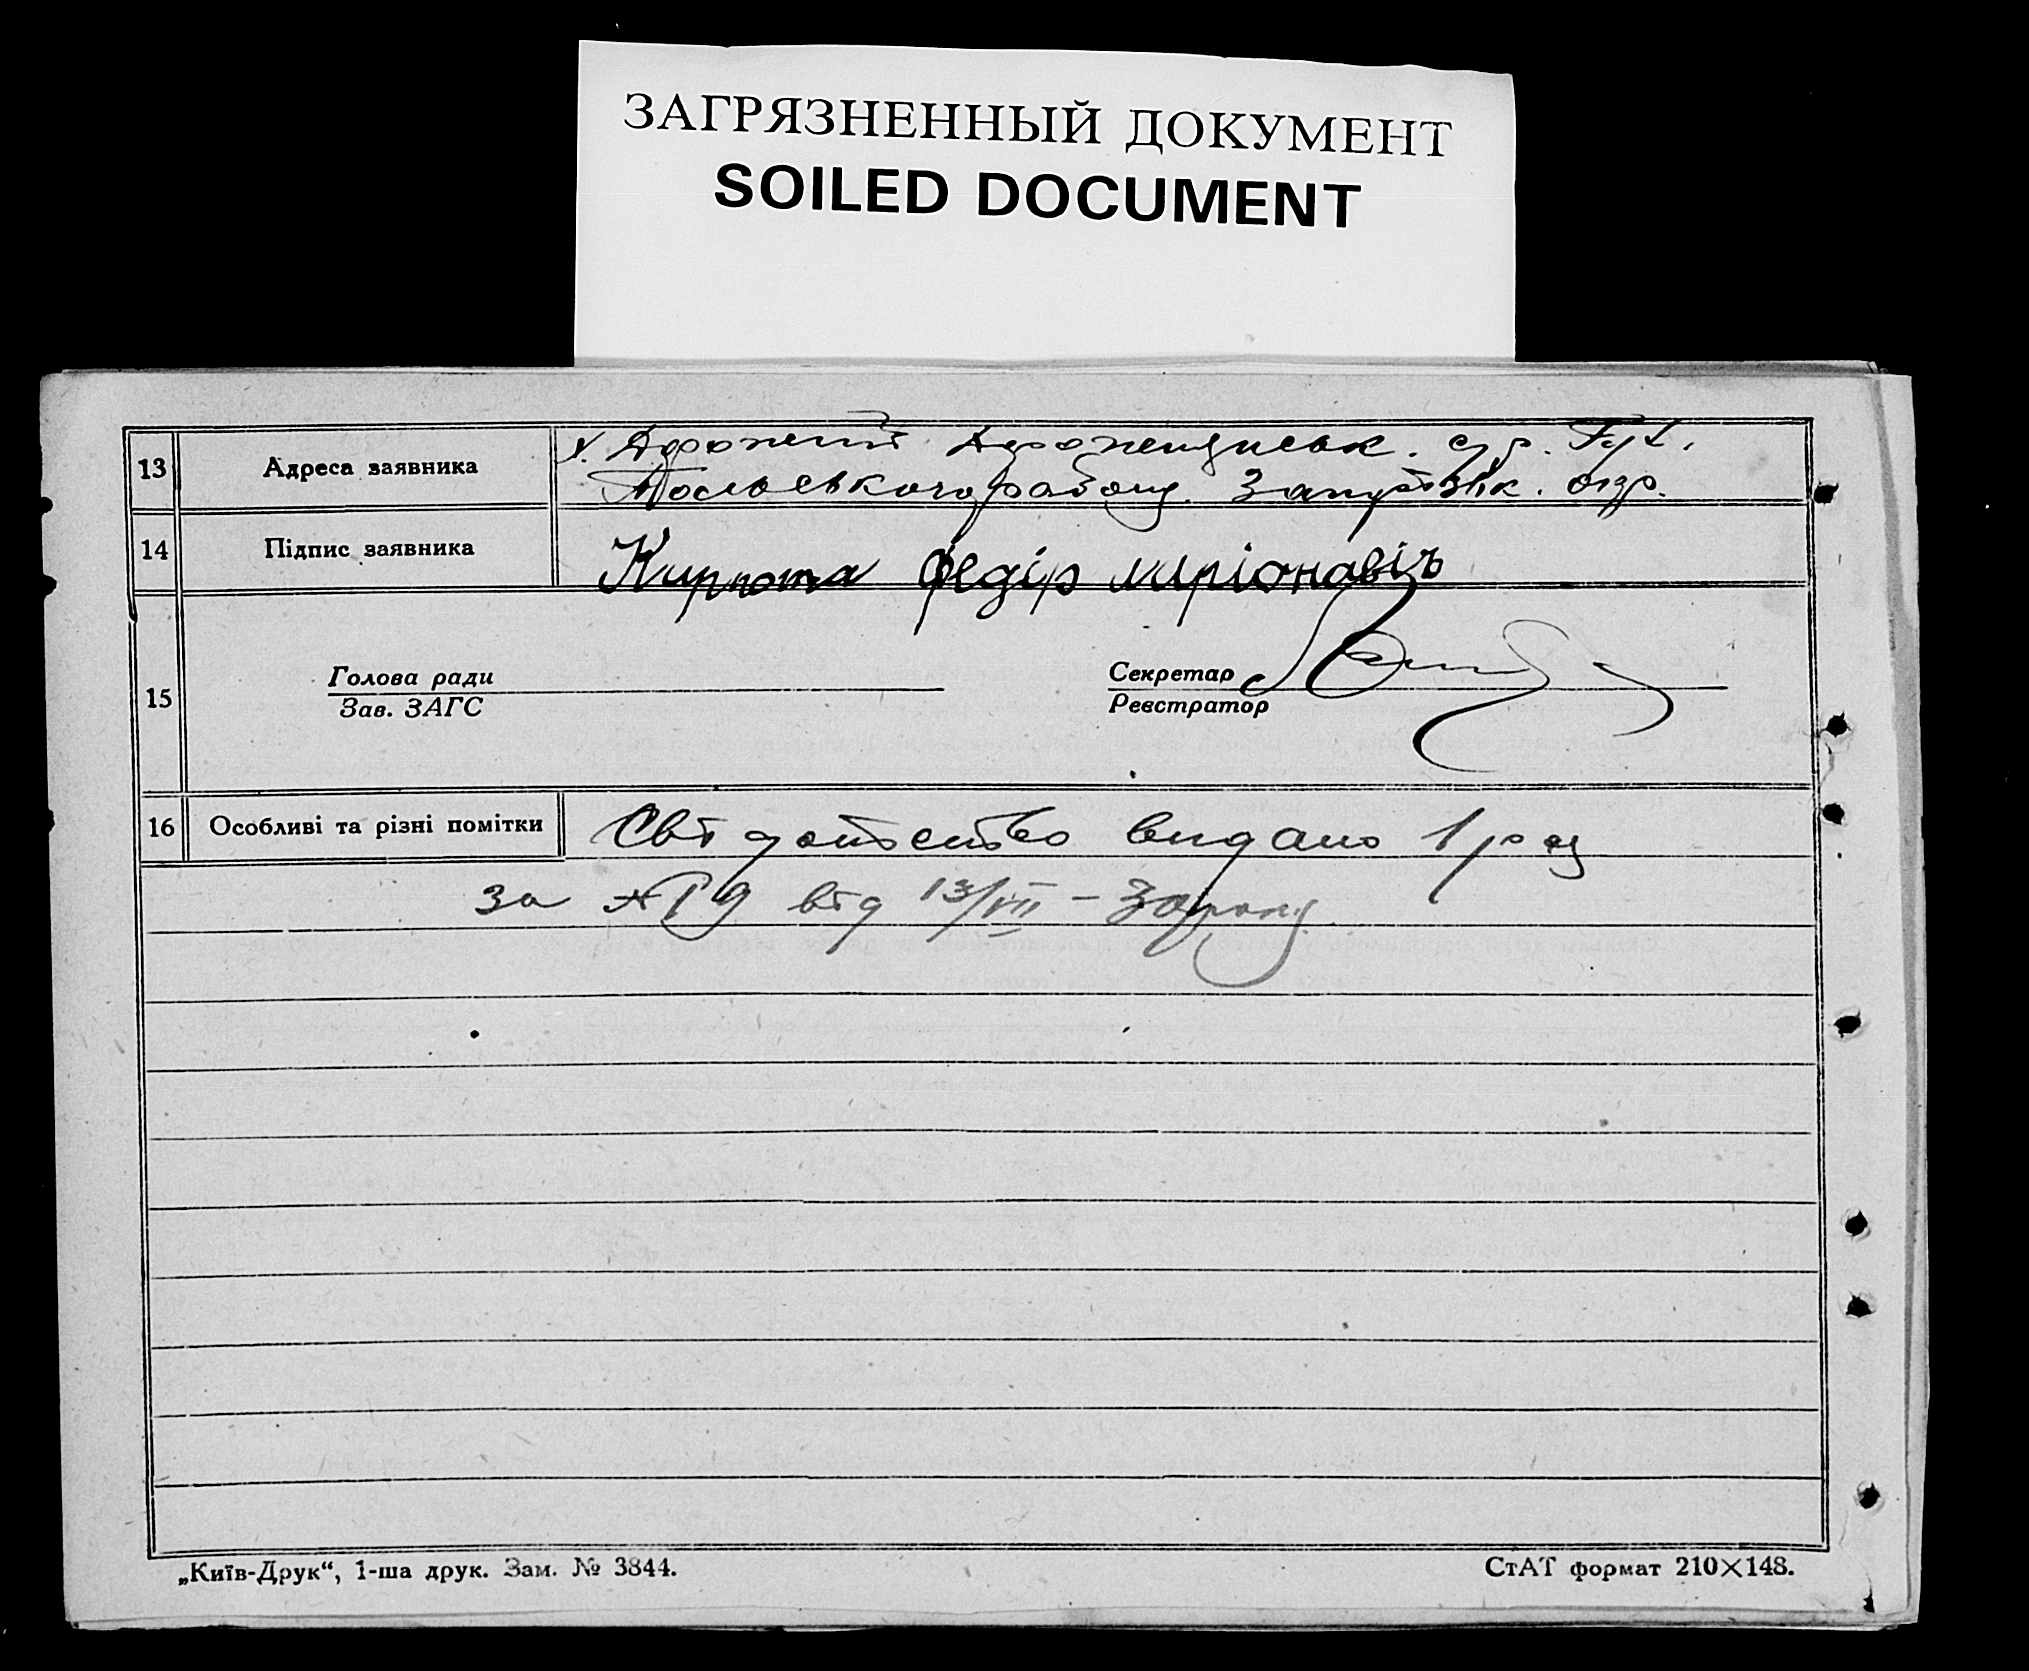 ЗАГРЯЗНЕННЫЙ ДОКУМЕНТ
SOILED DOCUMENT
13 Адреса заявника
району
14 Підпис заявника Кирпота федір
15 Голова ради Секретар
Зав. ЗАГС Реєстратор
16 Особливі та різні помітки Свідотство видано 1 раз
за № 19 від 13/VII – 30 року
„Київ-Друк“, 1-ша друк. Зам. № 3844. СтАТ формат 210×148.